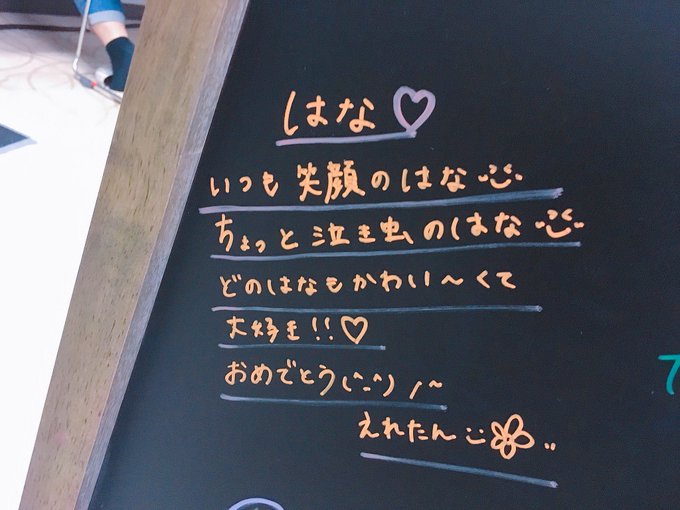 はな♡
いつも笑顔のはな
ちょっと泣き虫のはな
どのはなもかわい〜くて
大好き!!♡
おめでとう(^-^)/~
えれたん